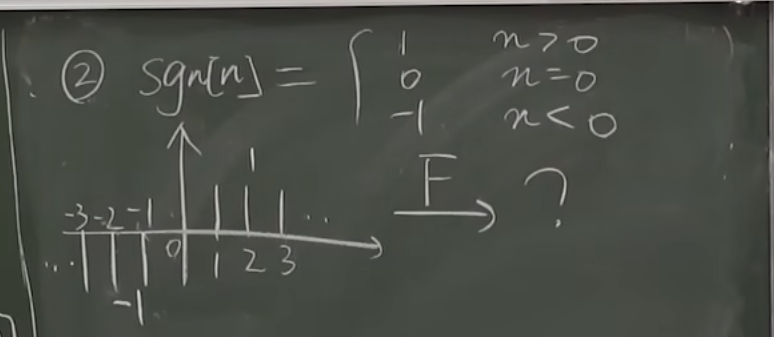 ② sgn[n] = { 1 n>0
0 n=0
-1 n<0
1
F
?
-3 -2 -1 ...
... 0 1 2 3
-1